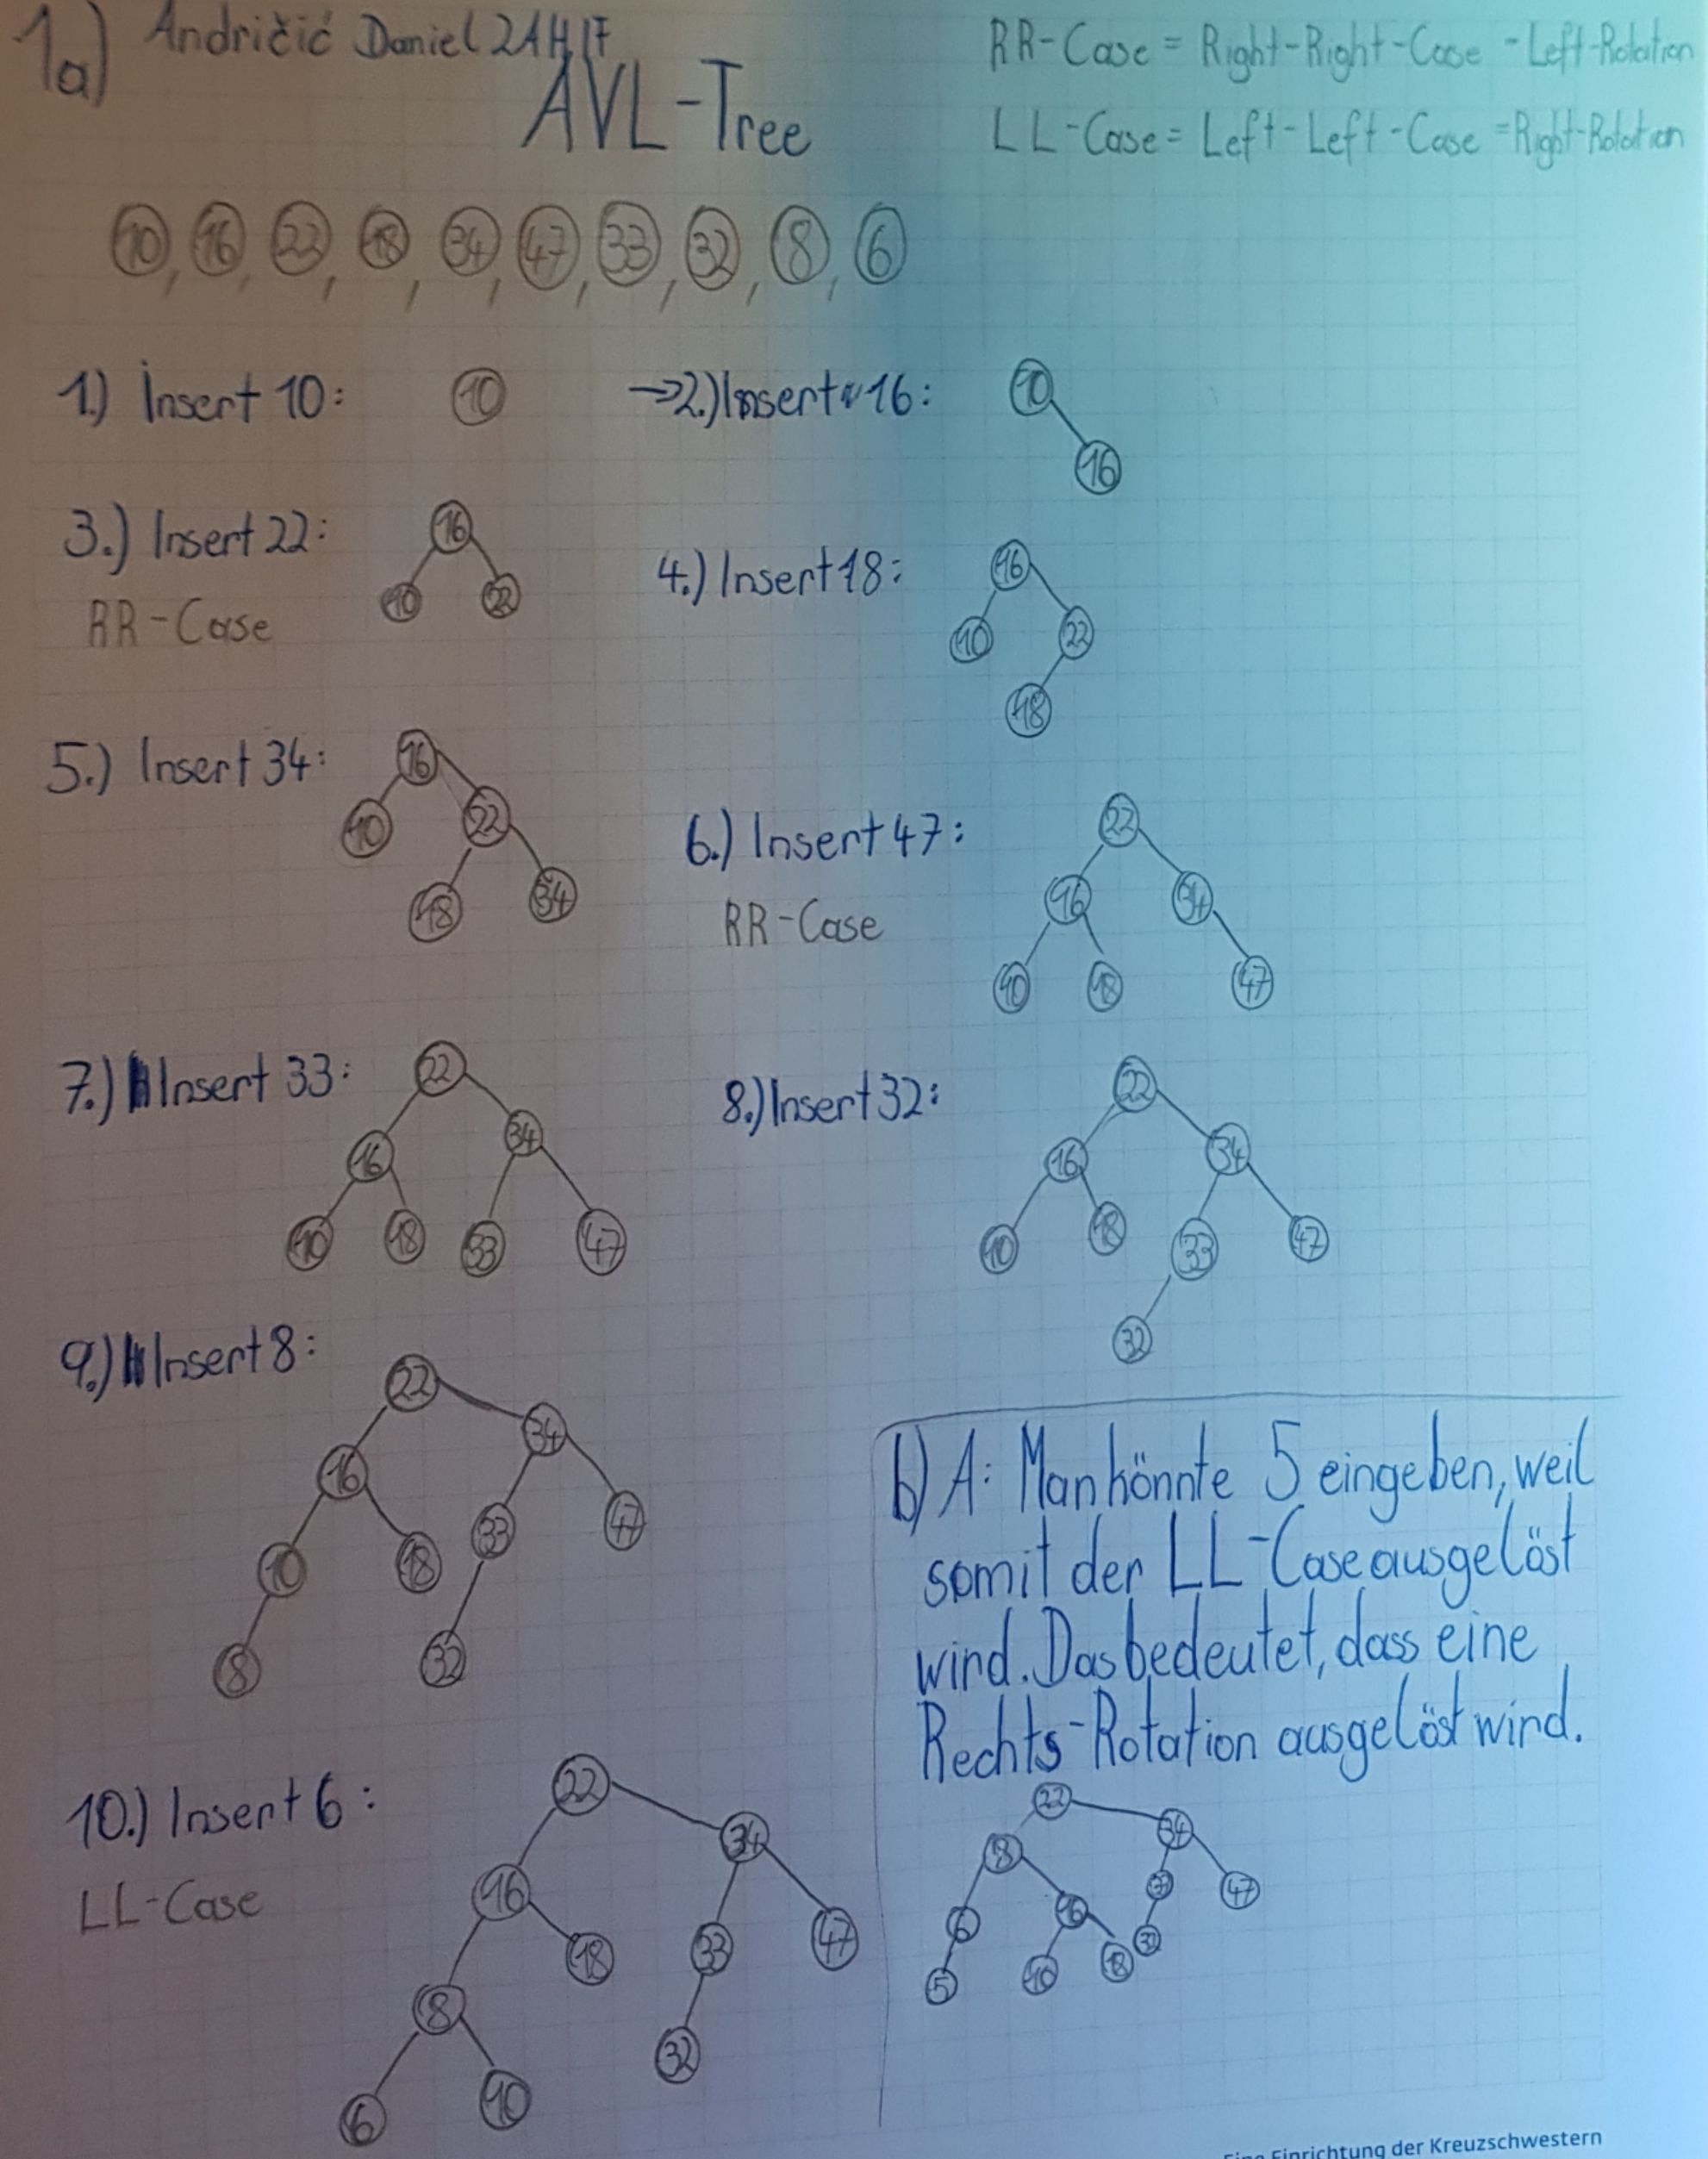 1a) Andričić Daniel 2AHIF
AVL-Tree
RR-Case = Right-Right-Case - Left-Rotation
LL-Case = Left-Left-Case = Right-Rotation
10, 16, 22, 18, 34, 47, 33, 32, 8, 6
1.) Insert 10:
10
→2.) Insert 16:
10
16
3.) Insert 22:
RR-Case
16
10 22
4.) Insert 18:
16
10 22
18
5.) Insert 34:
16
10 22
18 34
6.) Insert 47:
RR-Case
22
16 34
10 18 47
7.) Insert 33:
22
16 34
10 18 33 47
8.) Insert 32:
22
16 34
10 18 33 47
32
9.) Insert 8:
22
16 34
10 18 33 47
8 32
10.) Insert 6:
LL-Case
22
16 34
8 18 33 47
6 10 32
b) A: Man könnte 5 eingeben, weil
somit der LL-Case ausgelöst
wird. Das bedeutet, dass eine
Rechts-Rotation ausgelöst wird.
22
8 34
6 16 33 47
5 10 18 32
Eine Einrichtung der Kreuzschwestern